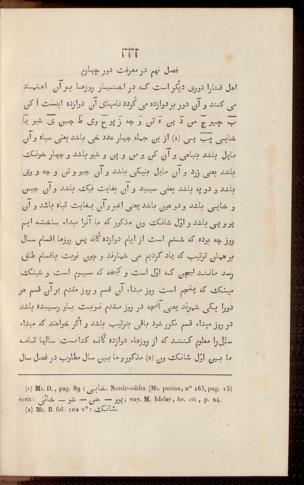 فصل نهم در معرفت دور چهارم
اهل قتارا دوری دیگر است که در اختیار روزها بر آن اعتماد
می کنند و آن دور بر دوازده می گردد نامهای آن دوازده اینست ا کن
ب چیو ج من د بن ه تن و چه ز پو ح وی ط چین ی شیو یا
خایی یب بی (1) از این جمله چهار عدد خی باشد یعنی سیاه و آن
مایل باشد بتباهی و آن کن و من و پن و شیو باشد و چهار خونک
باشد یعنی زرد و آن مایل بنیکی باشد و آن چیو و تن و چه و وی
باشد و دو په باشد یعنی سپید و آن بغایت نیک باشد و آن چین
و خایی باشد و دو هون باشد یعنی اغبر و آن بغایت تباه باشد و آن
پو و پی باشد و اول شانک ون مذکور که ما آنرا مبداء ساخته ایم
روز چه بوده که ششم است از ایام دوازده گانه پس روزها اقسام سال
بر همان ترتیب که یاد کردیم می شمارند و چون نوبت باقسام طاق
رسد مانند لیچون که اول است و کیجه که سیوم است و شینک
مینک که پنجم است روز مبداء آن قسم و روز مقدم بر آن قسم هر
دو را یکی شمرند یعنی آنچه در روز مقدم نوبت باو رسیده باشد
در روز مبداء قسم مکرر شود باقی بترتیب باشد و اگر خواهند که مبداء
سالی را معلوم کنند که از روزهاء دوازده گانه کدامست سالها تامه
ما بین اول شانک ون (2) مذکور و ما بین سال مطلوب در فصل سال
(1) Ms. D., pag. 89 : خایـی. Nassir-eddin (Ms. persan, n° 163, pag. 15)
écrit : پوو — خن — شو — خائی ; voy. M. Ideler, loc. cit., p. 24.
(2) Ms. B. fol. 102 v° : شانک.